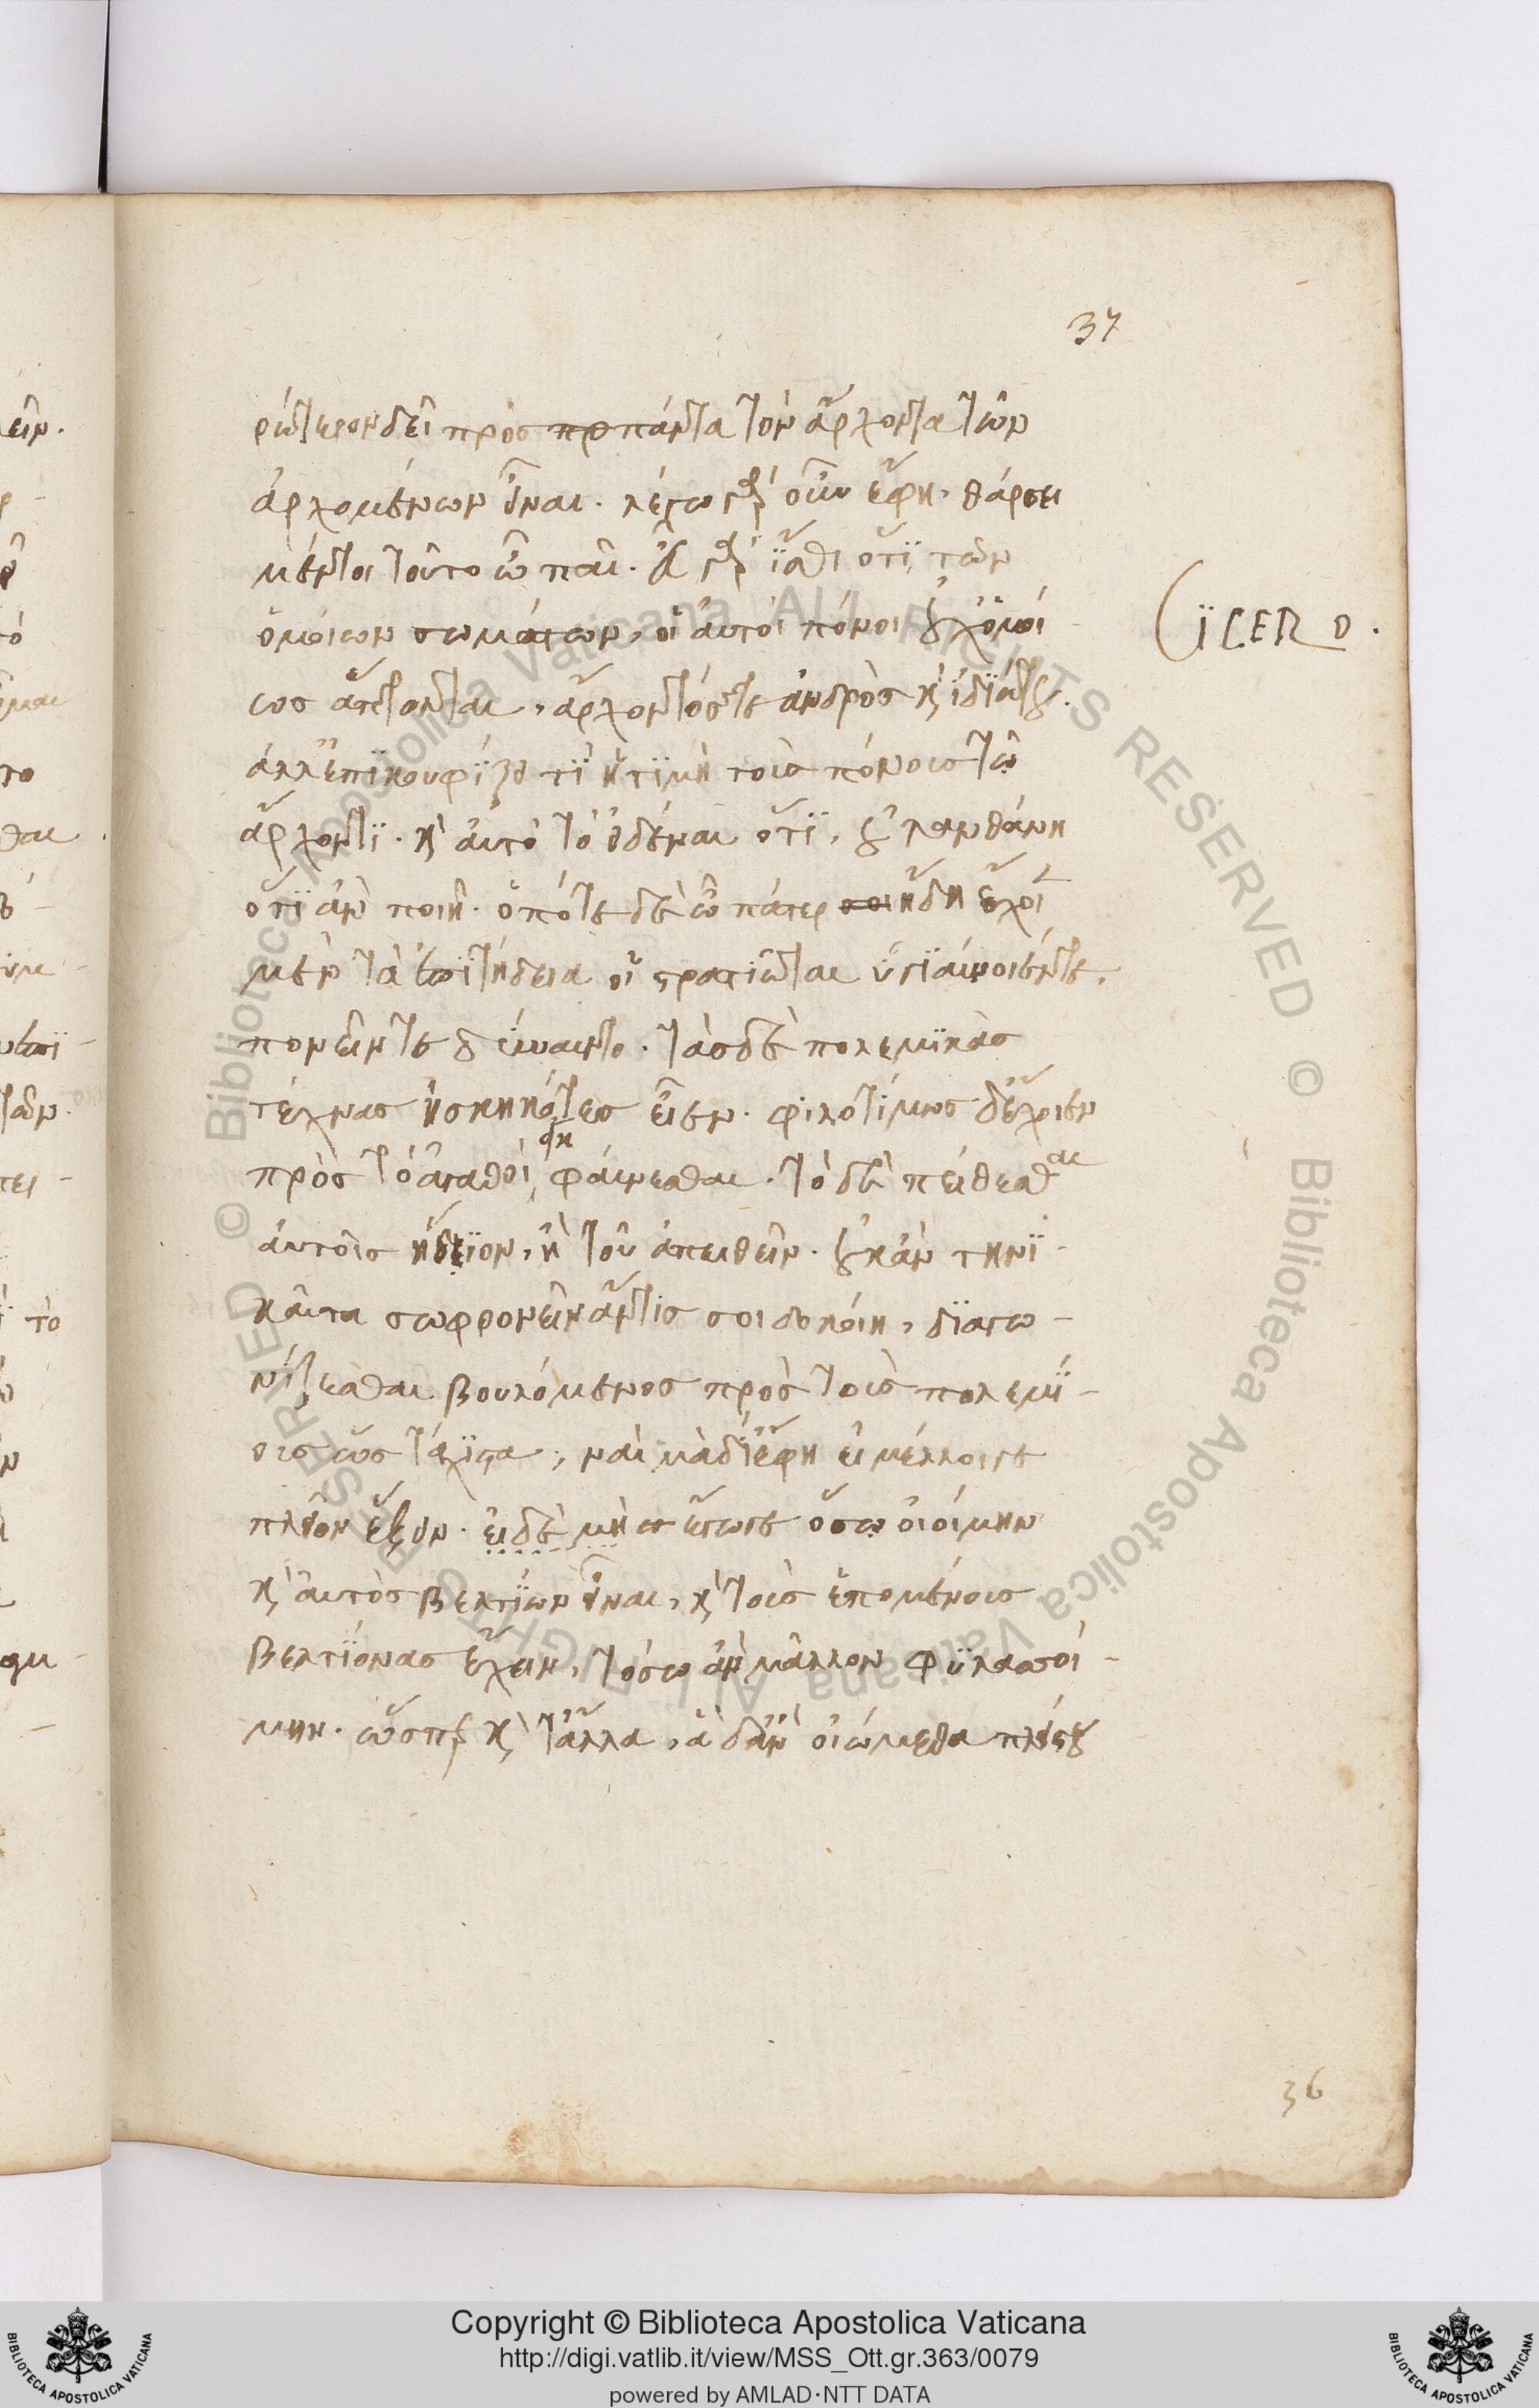 37
ρώτερον δεῖ πρὸς προπάντα τὸν ἄρχοντα τῶν
ἀρχομένων εἶναι. λέγω γὰρ οὖν ἔφη. θάρσει
μέντοι τοῦτο ὦ παῖ. εὖ γὰρ ἴσθι ὅτι, τῶν
ὁμοίων σωμάτων, οἱ αὐτοὶ πόνοι οὐχ ὁμοί-
ως ἅπτονται, ἄρχοντός τε ἀνδρὸς καὶ ἰδιώτου.
ἀλλ' ἐπικουφίζει τι ἡ τιμὴ τοὺς πόνους τῷ
ἄρχοντι. καὶ αὐτὸ τὸ εἰδέναι ὅτι, οὐ λανθάνη
ὅτι ἂν ποιῇ. ὁπότε δὲ ὦ πάτερ σοι ἤδη ἔχοι
μὲν τὰ ἐπιτήδεια οἱ στρατιῶται ὑγιαίνοιέν τε,
πονεῖν τε δύναιντο. τὰς δὲ πολεμικὰς
τέχνας ἠσκηκότες εἶεν. φιλοτίμως δ' ἔχοιεν
πρὸς τὸ ἀγαθοὶ φαίνεσθαι. τὸ δὲ πείθεσθαι
αὐτοῖς ἥδειον, ἢ τοῦ ἀπειθεῖν. οὐκ ἂν τηνι-
καῦτα σωφρονεῖν ἄν τις σοι δοκοίη, διαγω-
νίζεσθαι βουλόμενος πρὸς τοὺς πολεμί-
ους ὡς τάχιστα; ναὶ μὰ δί' ἔφη εἰ μέλλοι γε
πλεῖον ἕξειν. εἰ δὲ μὴ ἔγωγε ὅσῳ οἰοίμην
καὶ αὐτὸς βελτίων εἶναι, καὶ τοὺς ἑπομένους
βελτίονας ἔχειν, τόσῳ ἂν μᾶλλον φυλασσοί-
μην. ὥσπερ καὶ τἄλλα, ἃ δ' ἂν οἰώμεθα πλείστου
CÏCERO.
36
Copyright © Biblioteca Apostolica Vaticana
http://digi.vatlib.it/view/MSS_Ott.gr.363/0079
powered by AMLAD·NTT DATA